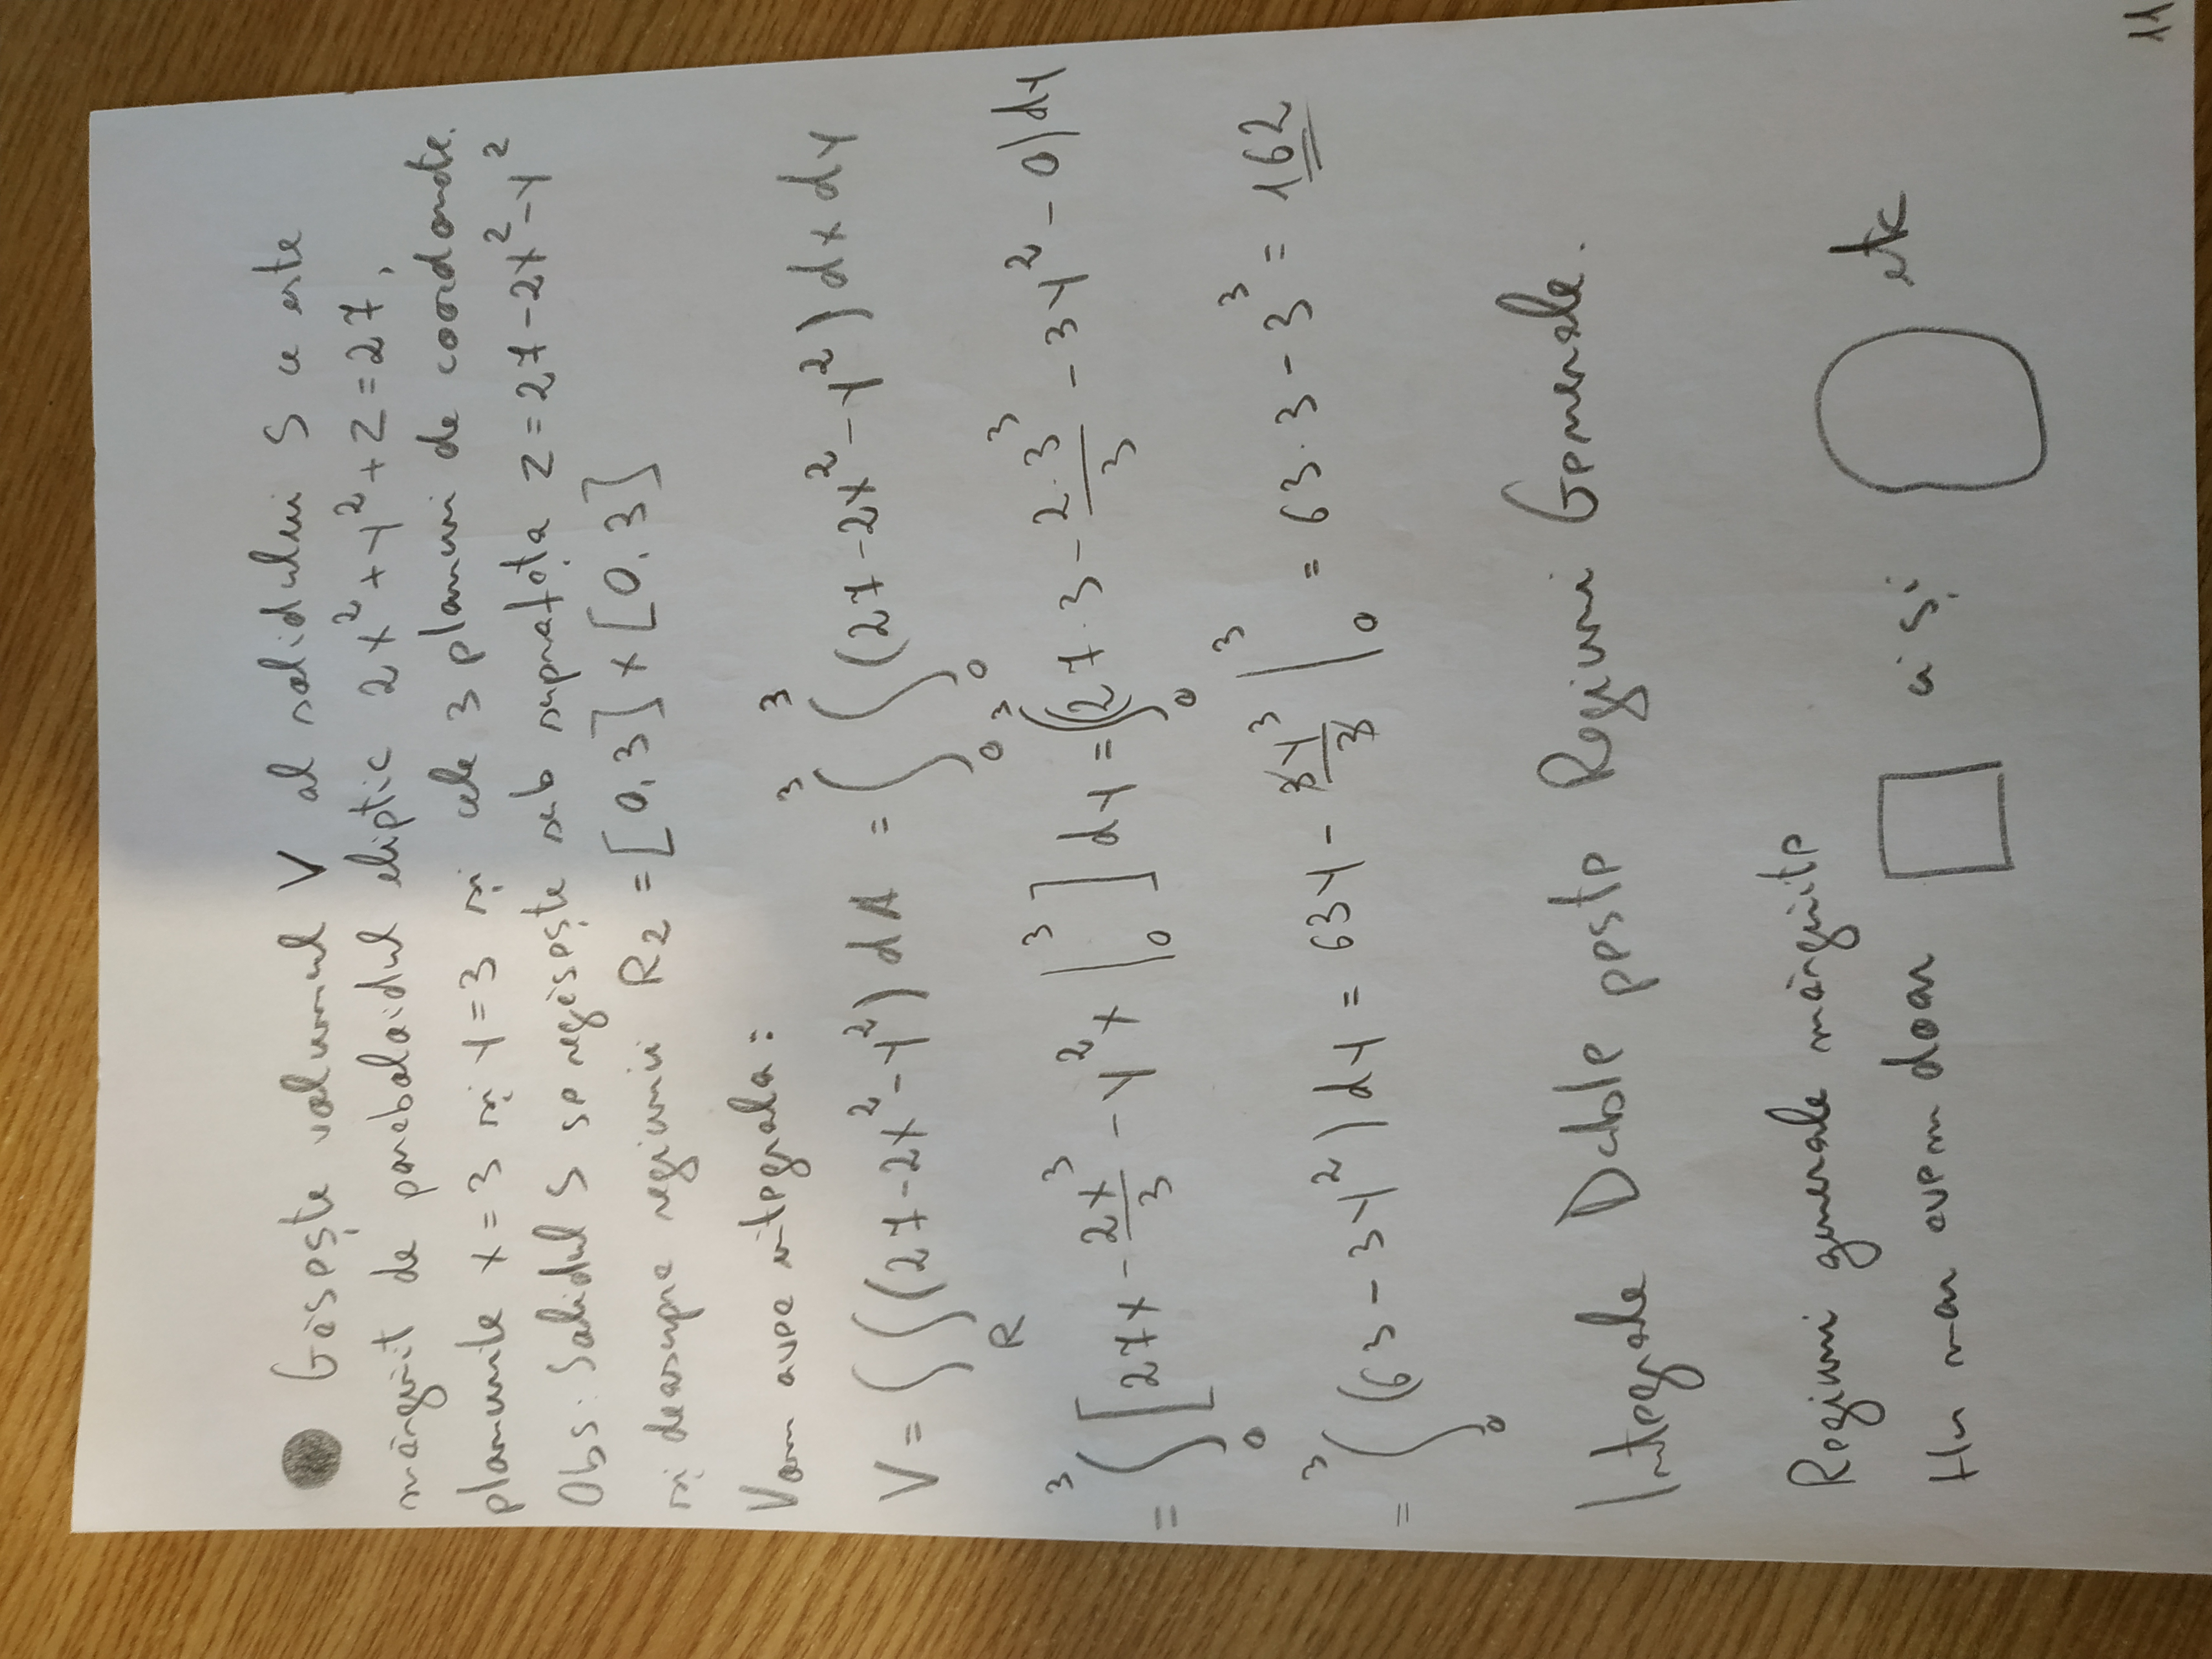 Găsește volumul V al solidului S ce este
mărginit de paraboloidul eliptic 2x² + y² + z = 27,
planurile x = 3 și y = 3 și cele 3 planuri de coordonate.
Obs: Solidul S se regăsește sub suprafața z = 27 - 2x² - y²
și deasupra regiunii R₂ = [0, 3] × [0, 3]
Vom avea integrala:
V = ∫∫_R (27 - 2x² - y²) dA = ∫₀³ ∫₀³ (27 - 2x² - y²) dx dy
= ∫₀³ [27x - 2x³/3 - y²x |₀³] dy = ∫₀³ (27·3 - 2·3³/3 - 3y² - 0) dy
= ∫₀³ (63 - 3y²) dy = 63y - 3y³/3 |₀³ = 63·3 - 3³ = 162
Integrale Duble peste Regiuni Generale.
Regiuni generale mărginite
Nu mai avem doar ci și etc
11